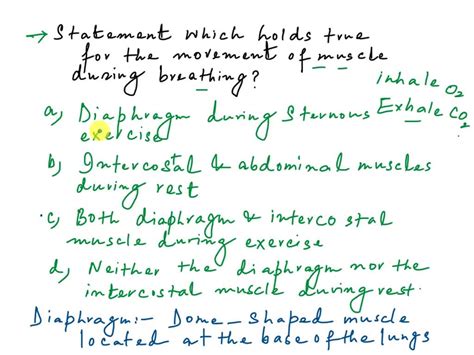 → Statement which holds true
for the movement of muscle
during breathing?
inhale O2
Exhale CO2
a) Diaphragm during Sternous
exercise
b) Intercostal & abdominal muscles
during rest
c) Both diaphragm & intercostal
muscle during exercise
d) Neither the diaphragm nor the
intercostal muscle during rest.
Diaphragm:- Dome-shaped muscle
located at the base of the lungs